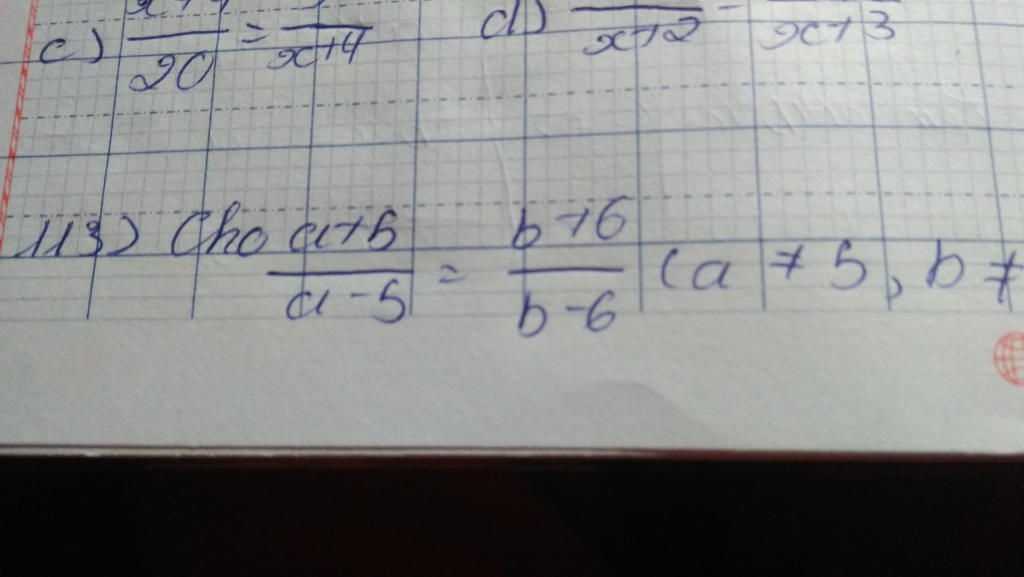 c) x+4/20 = 5/x+4 d) /x+2 = /x+3
113) Cho a+5/a-5 = b+6/b-6 (a ≠ 5, b ≠